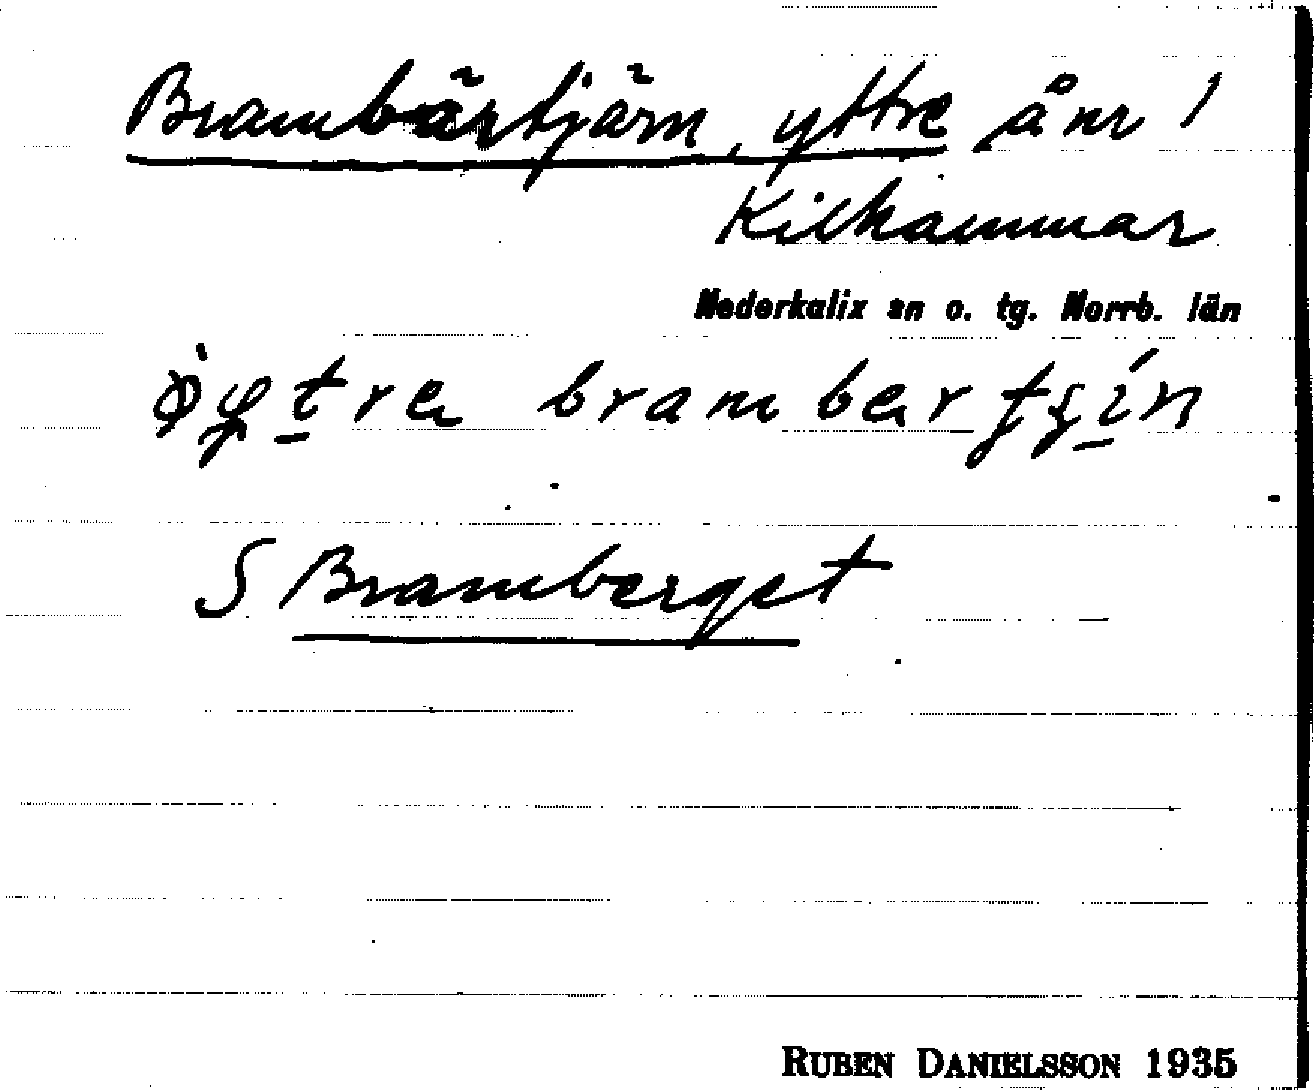 Brambärtjärn, yttre å nr 1
Kilhammar
Nederkalix sn o. tg. Norrb. län
bramber
S Bramberget
RUBEN DANIELSSON 1935